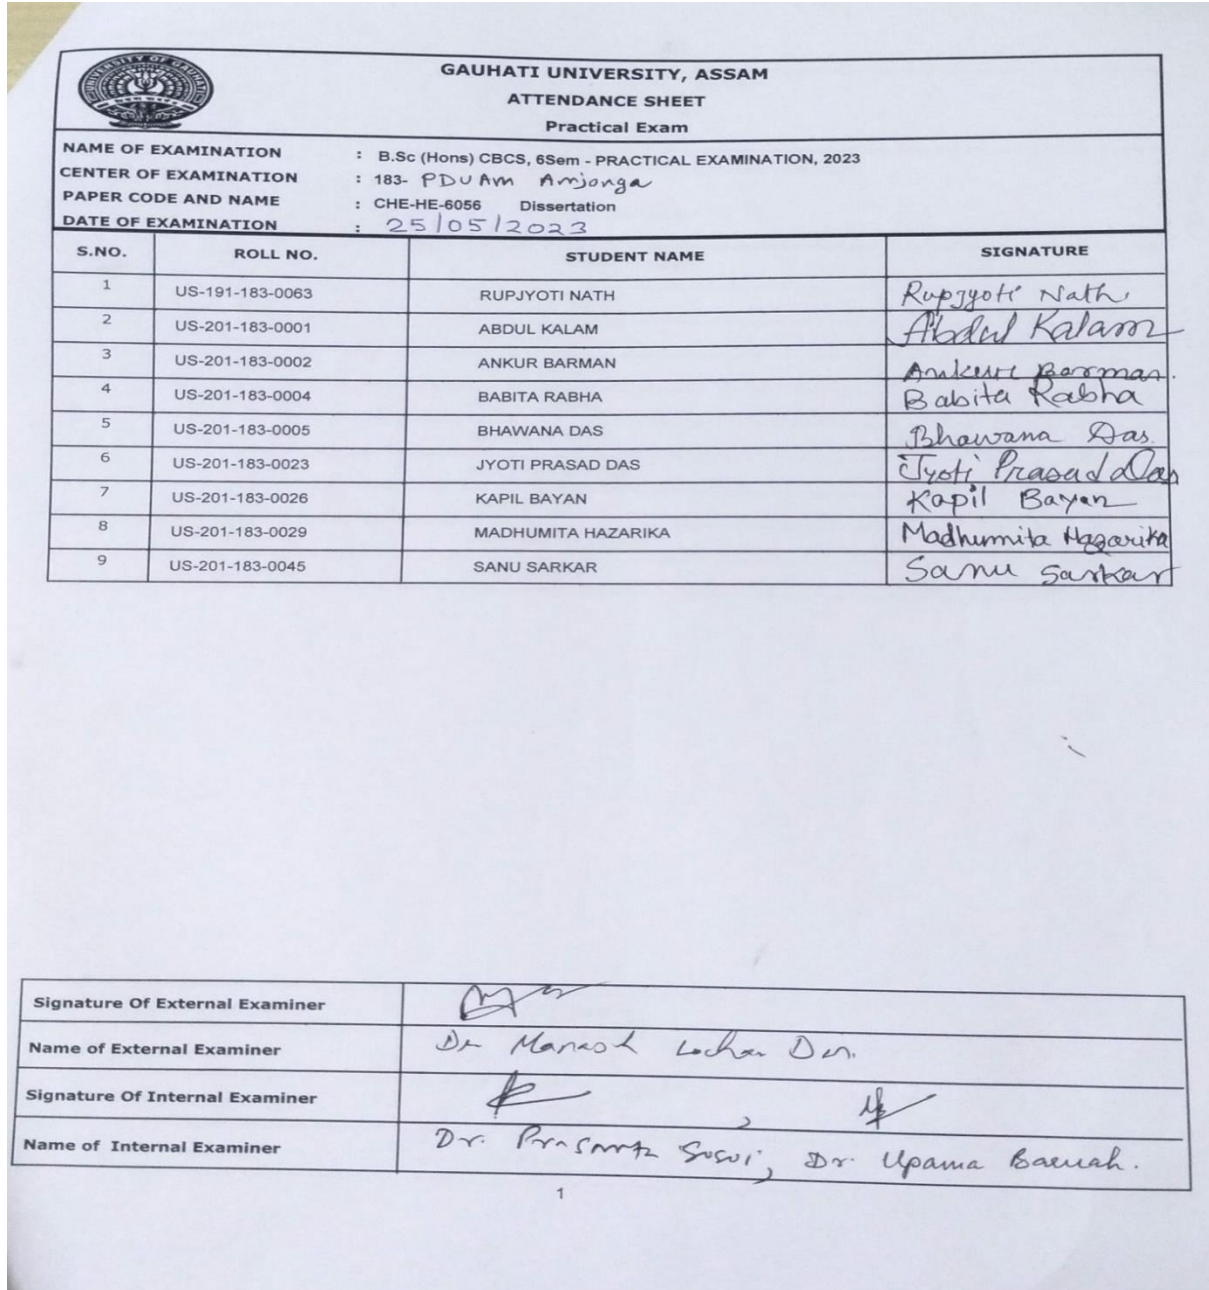 UNIVERSITY OF GAUHATI
GAUHATI UNIVERSITY, ASSAM
ATTENDANCE SHEET
Practical Exam
NAME OF EXAMINATION : B.Sc (Hons) CBCS, 6Sem - PRACTICAL EXAMINATION, 2023
CENTER OF EXAMINATION : 183- PDUAM Amjonga
PAPER CODE AND NAME : CHE-HE-6056 Dissertation
DATE OF EXAMINATION : 25/05/2023
S.NO. ROLL NO. STUDENT NAME SIGNATURE
1 US-191-183-0063 RUPJYOTI NATH Rupjyoti Nath
2 US-201-183-0001 ABDUL KALAM Abdul Kalam
3 US-201-183-0002 ANKUR BARMAN Ankur Barman.
4 US-201-183-0004 BABITA RABHA Babita Rabha
5 US-201-183-0005 BHAWANA DAS Bhawana Das.
6 US-201-183-0023 JYOTI PRASAD DAS Jyoti Prasad Das
7 US-201-183-0026 KAPIL BAYAN Kapil Bayan
8 US-201-183-0029 MADHUMITA HAZARIKA Madhumita Hazarika
9 US-201-183-0045 SANU SARKAR Sanu Sarkar
Signature Of External Examiner
Name of External Examiner Dr Manash
Signature Of Internal Examiner ,
Name of Internal Examiner Dr. , Dr. Upama Baruah.
1